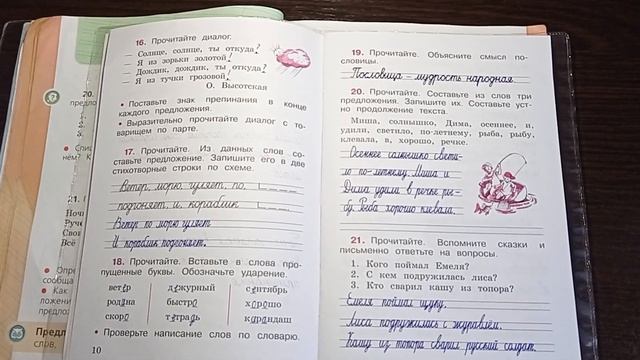 16. Прочитайте диалог.
— Солнце, солнце, ты откуда?
— Я из зорьки золотой!
— Дождик, дождик, ты откуда?
— Я из тучки грозовой!
О. Высотская
• Поставьте знак препинания в конце
каждого предложения.
• Выразительно прочитайте диалог с то-
варищем по парте.
17. Прочитайте. Из данных слов со-
ставьте предложение. Запишите его в две
стихотворные строки по схеме.
Ветер, морю, гуляет, по,
подгоняет, и, кораблик
Ветер по морю гуляет
И кораблик подгоняет.
18. Прочитайте. Вставьте в слова про-
пущенные буквы. Обозначьте ударение.
ветер дежурный сентябрь
родина быстро хорошо
скоро тетрадь карандаш
• Проверьте написание слов по словарю.
10
19. Прочитайте. Объясните смысл по-
словицы.
Пословица — мудрость народная.
20. Прочитайте. Составьте из слов три
предложения. Запишите их. Составьте уст-
но продолжение текста.
Миша, солнышко, Дима, осеннее, и,
удили, светило, по-летнему, рыба, рыбу,
клевала, в, хорошо, речке.
Осеннее солнышко свети-
ло по-летнему. Миша и
Дима удили в речке ры-
бу. Рыба хорошо клевала.
21. Прочитайте. Вспомните сказки и
письменно ответьте на вопросы.
1. Кого поймал Емеля?
2. С кем подружилась лиса?
3. Кто сварил кашу из топора?
Емеля поймал щуку.
Лиса подружилась с журавлём.
Кашу из топора сварил русский солдат.
20.
предло
21.
Ночн
Руче
Снов
Всё
• Опре
сообща
• Как
ложени
предло
Предл
слов.